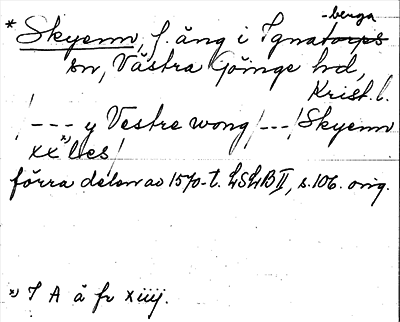 -berga
* Skyenn, f. äng i Ignatorps
sn, Västra Göinge hd,
Krist. l.
/--- y Vestre wong /---/ Skyenn
xx x) les/
förra delen av 1570-t. LSLB II, s. 106. orig.
x) I A ä fr xiiij.